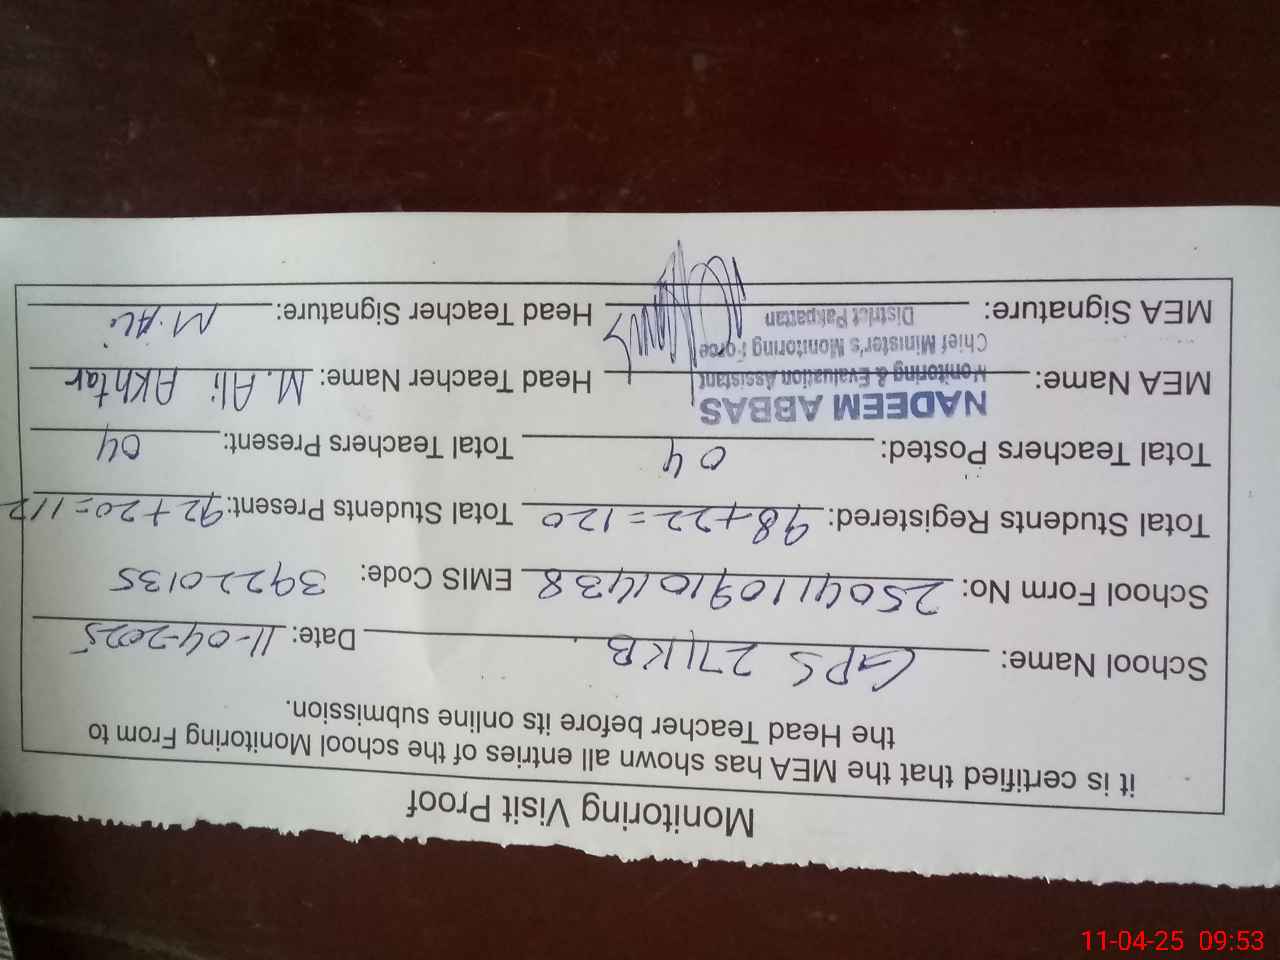 Monitoring Visit Proof
it is certified that the MEA has shown all entries of the school Monitoring From to
the Head Teacher before its online submission.
School Name: GPS 27/KB Date: 11-04-2025
School Form No: 25041109101438 EMIS Code: 39220135
Total Students Registered: 98+22=120 Total Students Present: 92+20=112
Total Teachers Posted: 04 Total Teachers Present: 04
NADEEM ABBAS
MEA Name: Monitoring & Evaluation Assistant Head Teacher Name: M. Ali Akhtar
Chief Minister's Monitoring Force
District Pakpattan
MEA Signature: Head Teacher Signature: M.Ali
11-04-25 09:53